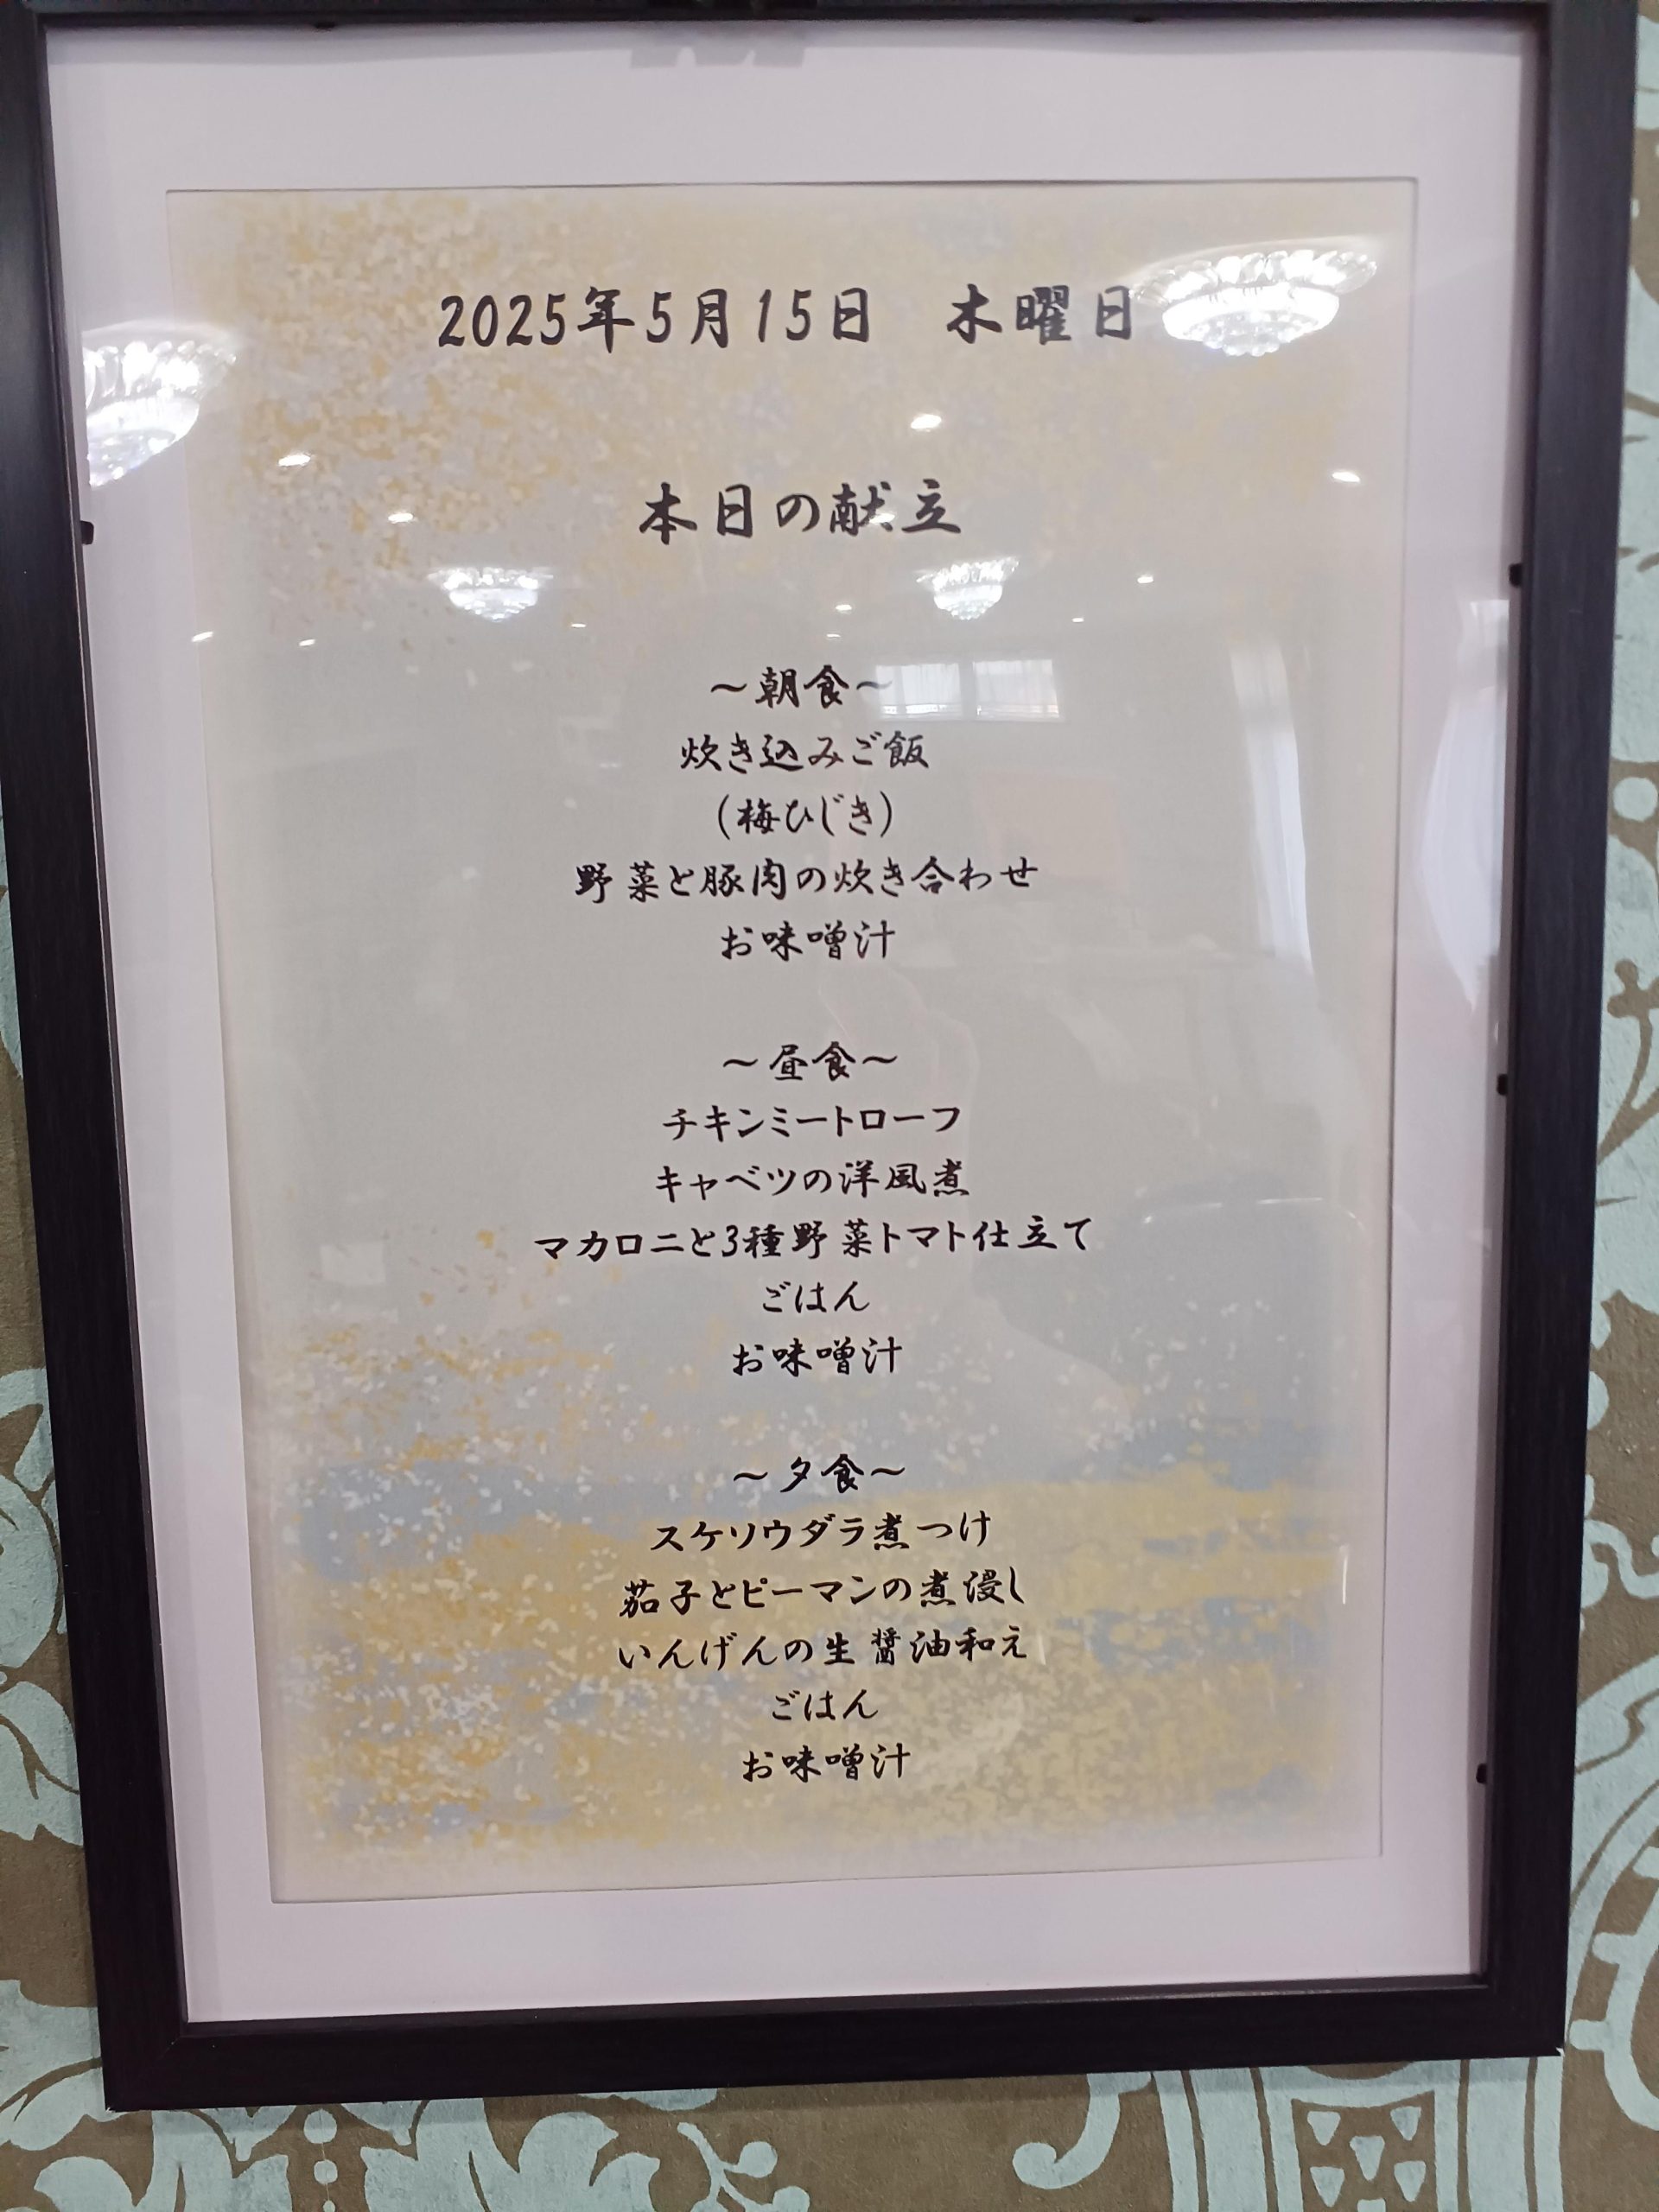 2025年5月15日　木曜日
本日の献立
～朝食～
炊き込みご飯
（梅ひじき）
野菜と豚肉の炊き合わせ
お味噌汁
～昼食～
チキンミートローフ
キャベツの洋風煮
マカロニと3種野菜トマト仕立て
ごはん
お味噌汁
～夕食～
スケソウダラ煮つけ
茄子とピーマンの煮浸し
いんげんの生醤油和え
ごはん
お味噌汁